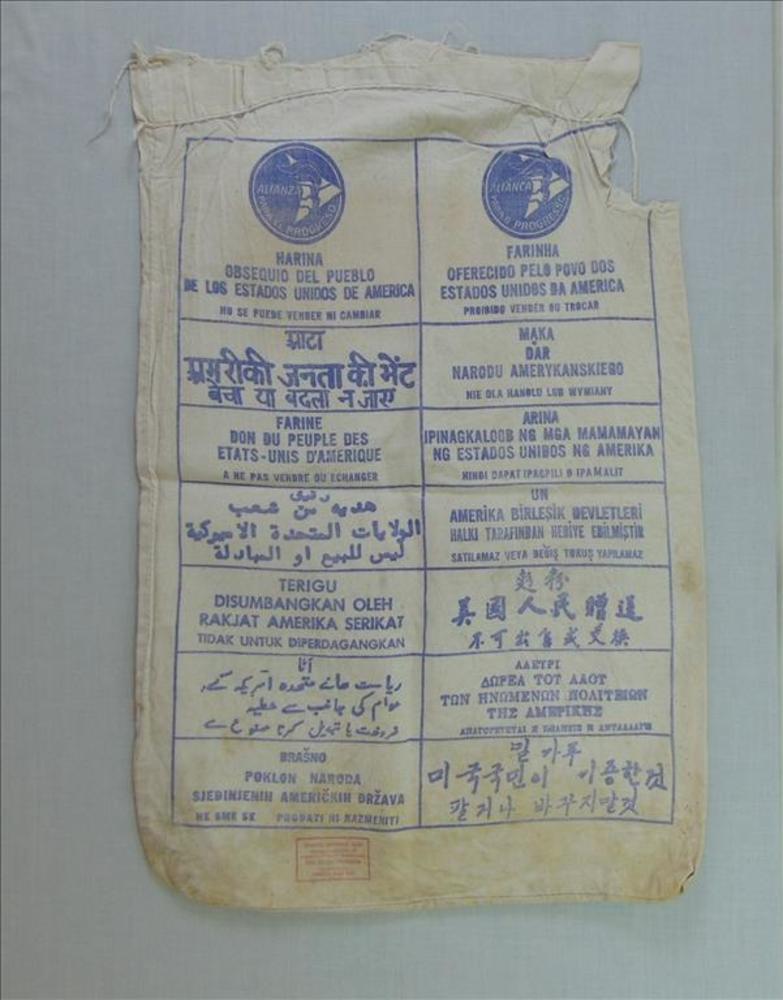 ALIANZA
PARA EL PROGRESO
HARINA
OBSEQUIO DEL PUEBLO
DE LOS ESTADOS UNIDOS DE AMERICA
NO SE PUEDE VENDER NI CAMBIAR
ALIANCA
PARA O PROGRESSO
FARINHA
OFERECIDO PELO POVO DOS
ESTADOS UNIDOS DA AMERICA
PROIBIDO VENDER OU TROCAR
आटा
अमरीकी जनता की भेंट
बेचा या बदला न जाए
MĄKA
DAR
NARODU AMERYKANSKIEGO
NIE DLA HANDLU LUB WYMIANY
FARINE
DON DU PEUPLE DES
ETATS-UNIS D'AMERIQUE
A NE PAS VENDRE OU ECHANGER
ARINA
IPINAGKALOOB NG MGA MAMAMAYAN
NG ESTADOS UNIDOS NG AMERIKA
HINDI DAPAT IPAGPILI O IPAMALIT
دقيق
هديه من شعب
الولايات المتحدة الاميركية
ليس للبيع او المبادلة
UN
AMERIKA BİRLEŞİK DEVLETLERİ
HALKI TARAFINDAN HEDİYE EDİLMİŞTİR
SATILAMAZ VEYA DEĞİŞ TOKUŞ YAPILAMAZ
TERIGU
DISUMBANGKAN OLEH
RAKJAT AMERIKA SERIKAT
TIDAK UNTUK DIPERDAGANGKAN
麪粉
美國人民贈送
不可出售或交換
آٹا
ریاست ہائے متحدہ امریکہ کے
عوام کی جانب سے عطیہ
فروخت یا تبدیل کرنا ممنوع ہے
ΑΛΕΥΡΙ
ΔΩΡΕΑ ΤΟΥ ΛΑΟΥ
ΤΩΝ ΗΝΩΜΕΝΩΝ ΠΟΛΙΤΕΙΩΝ
ΤΗΣ ΑΜΕΡΙΚΗΣ
ΑΠΑΓΟΡΕΥΕΤΑΙ Η ΠΩΛΗΣΙΣ Η ΑΝΤΑΛΛΑΓΗ
BRAŠNO
POKLON NARODA
SJEDINJENIH AMERIČKIH DRŽAVA
NE SME SE PRODATI NI RAZMENITI
밀가루
미국국민이 기증한것
팔거나 바꾸지말것